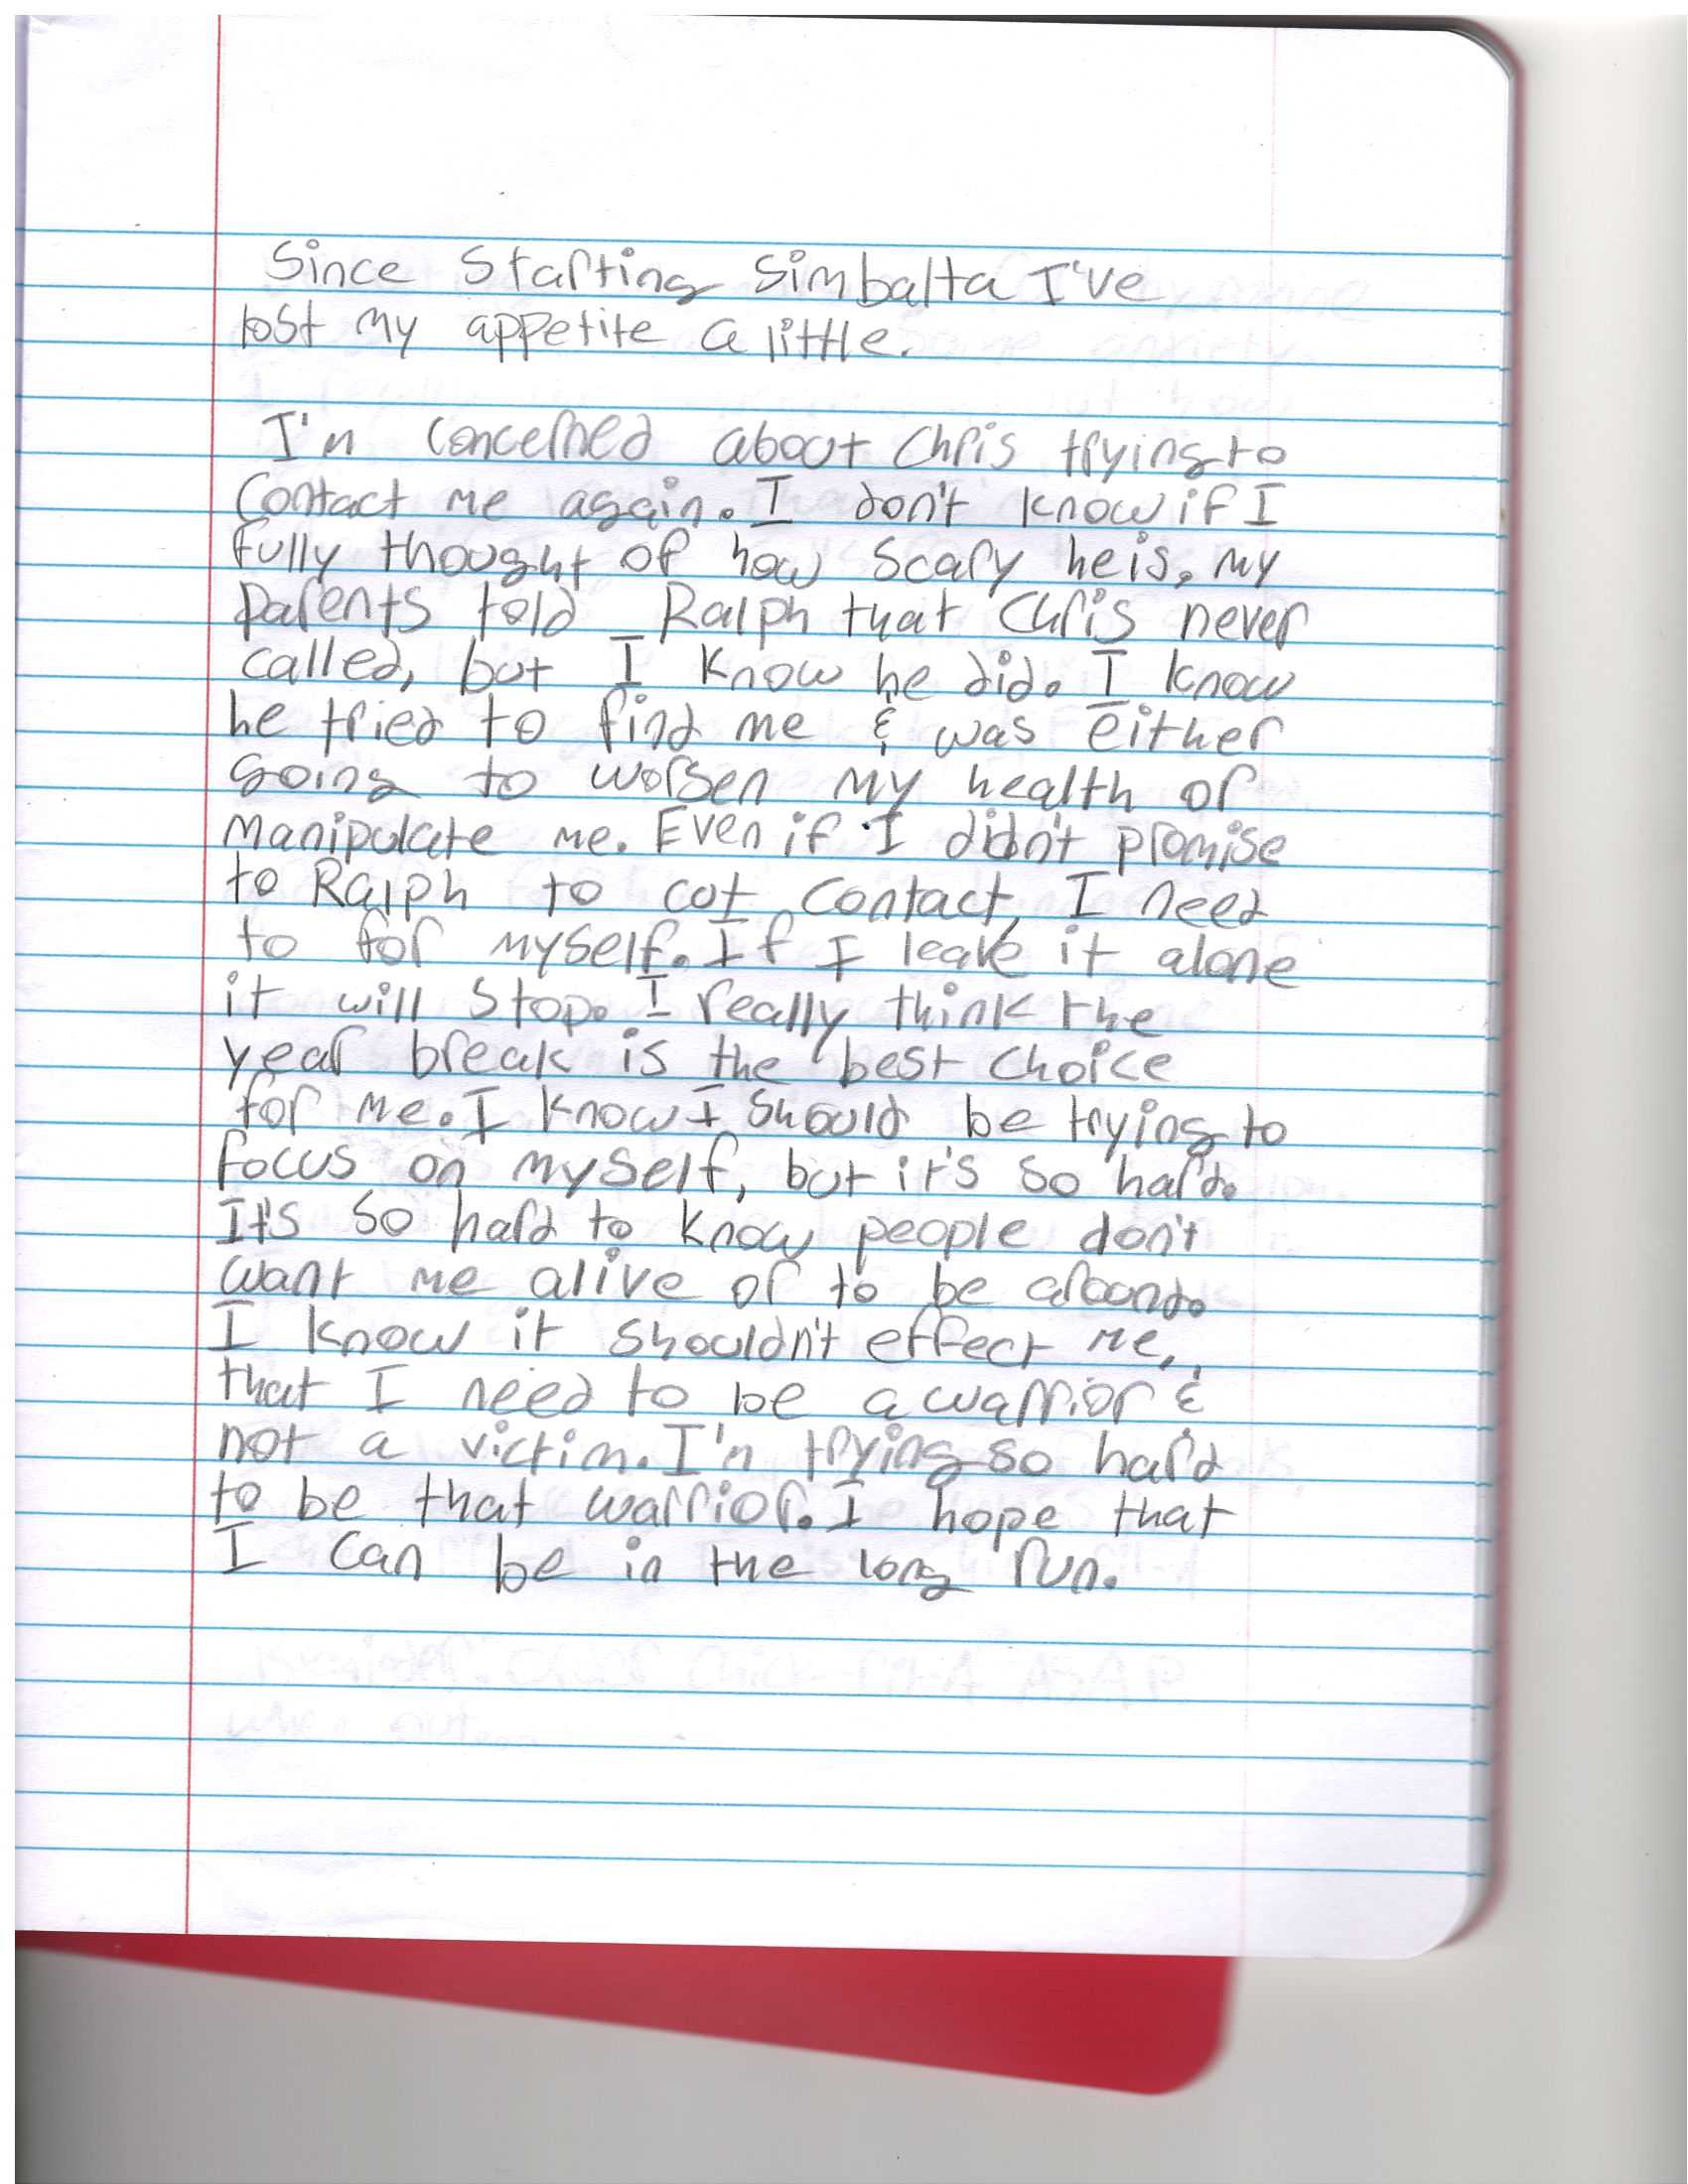 Since Starting Simbalta I've
lost my appetite a little.
I'm concerned about Chris trying to
Contact me again. I don't know if I
fully thought of how scary he is. my
parents told Ralph that Chris never
called, but I know he did. I know
he tried to find me & was either
going to worsen my health or
manipulate me. Even if I didn't promise
to Ralph to cut contact, I need
to for myself. If I leave it alone
it will stop. I really think the
year break is the best choice
for me. I know I should be trying to
focus on myself, but it's so hard.
It's so hard to know people don't
want me alive or to be around.
I know it shouldn't effect me,
that I need to be a warrior &
not a victim. I'm trying so hard
to be that warrior. I hope that
I can be in the long run.